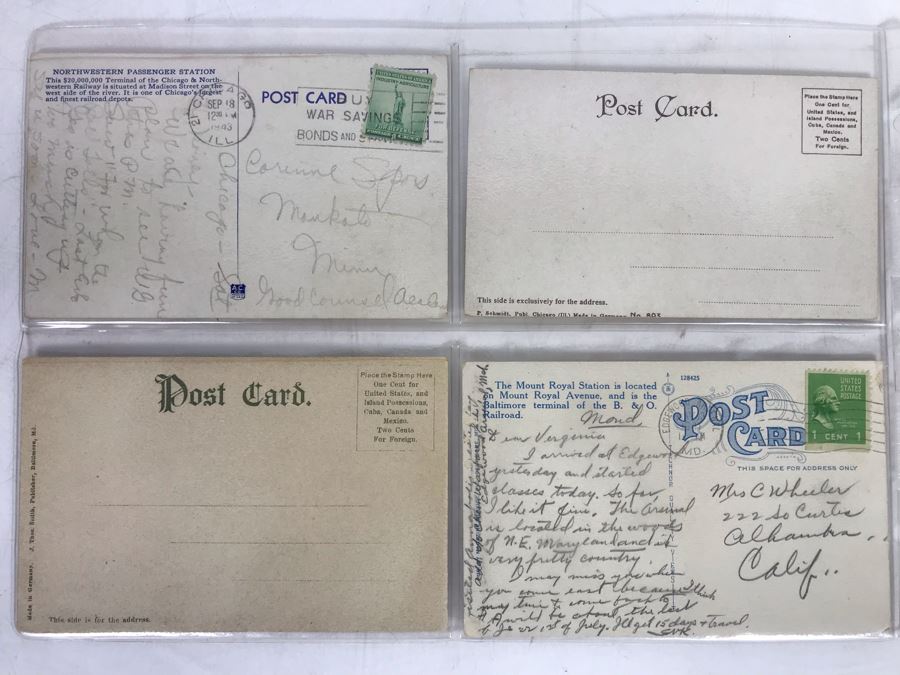 NORTHWESTERN PASSENGER STATION
This $20,000,000 Terminal of the Chicago & North-
western Railway is situated at Madison Street on the
west side of the river. It is one of Chicago's largest
and finest railroad depots.
CHICAGO
SEP 18
1943
ILL
POST CARD
BUY
WAR SAVINGS
BONDS AND
UNITED STATES OF AMERICA
INDUSTRY-AGRICULTURE
FOR DEFENSE
Chicago - Sat
having fun
P.M.
Love - M
Corinne
Mankato
Minn
Good Counsel
Post Card.
Place the Stamp Here
One Cent for
United States, and
Island Possessions,
Cuba, Canada and
Mexico.
Two Cents
For Foreign.
This side is exclusively for the address.
P. Schmidt, Publ. Chicago (Ill.) Made in Germany No. 893
Post Card.
Place the Stamp Here
One Cent for
United States, and
Island Possessions,
Cuba, Canada and
Mexico.
Two Cents
For Foreign.
Made in Germany. J. Thos. Smith, Publisher, Baltimore, Md.
This side is for the address.
The Mount Royal Station is located
on Mount Royal Avenue, and is the
Baltimore terminal of the B. & O.
Railroad.
128425
POST
CARD
THIS SPACE FOR ADDRESS ONLY
UNITED
STATES
POSTAGE
1 CENT 1
MD.
Mond
Dear Virginia
I arrived at Edgewood
yesterday and started
classes today. So far,
I like it fine. The Arsenal
is located in the woods
of N.E. Maryland and is
very pretty country.
I may miss you when
you come east because I think
my time to come back to
will be about the last
of June or 1st of July. I'll get 15 days + travel.
Mrs C Wheeler
222 So Curtis
Alhambra,
Calif..